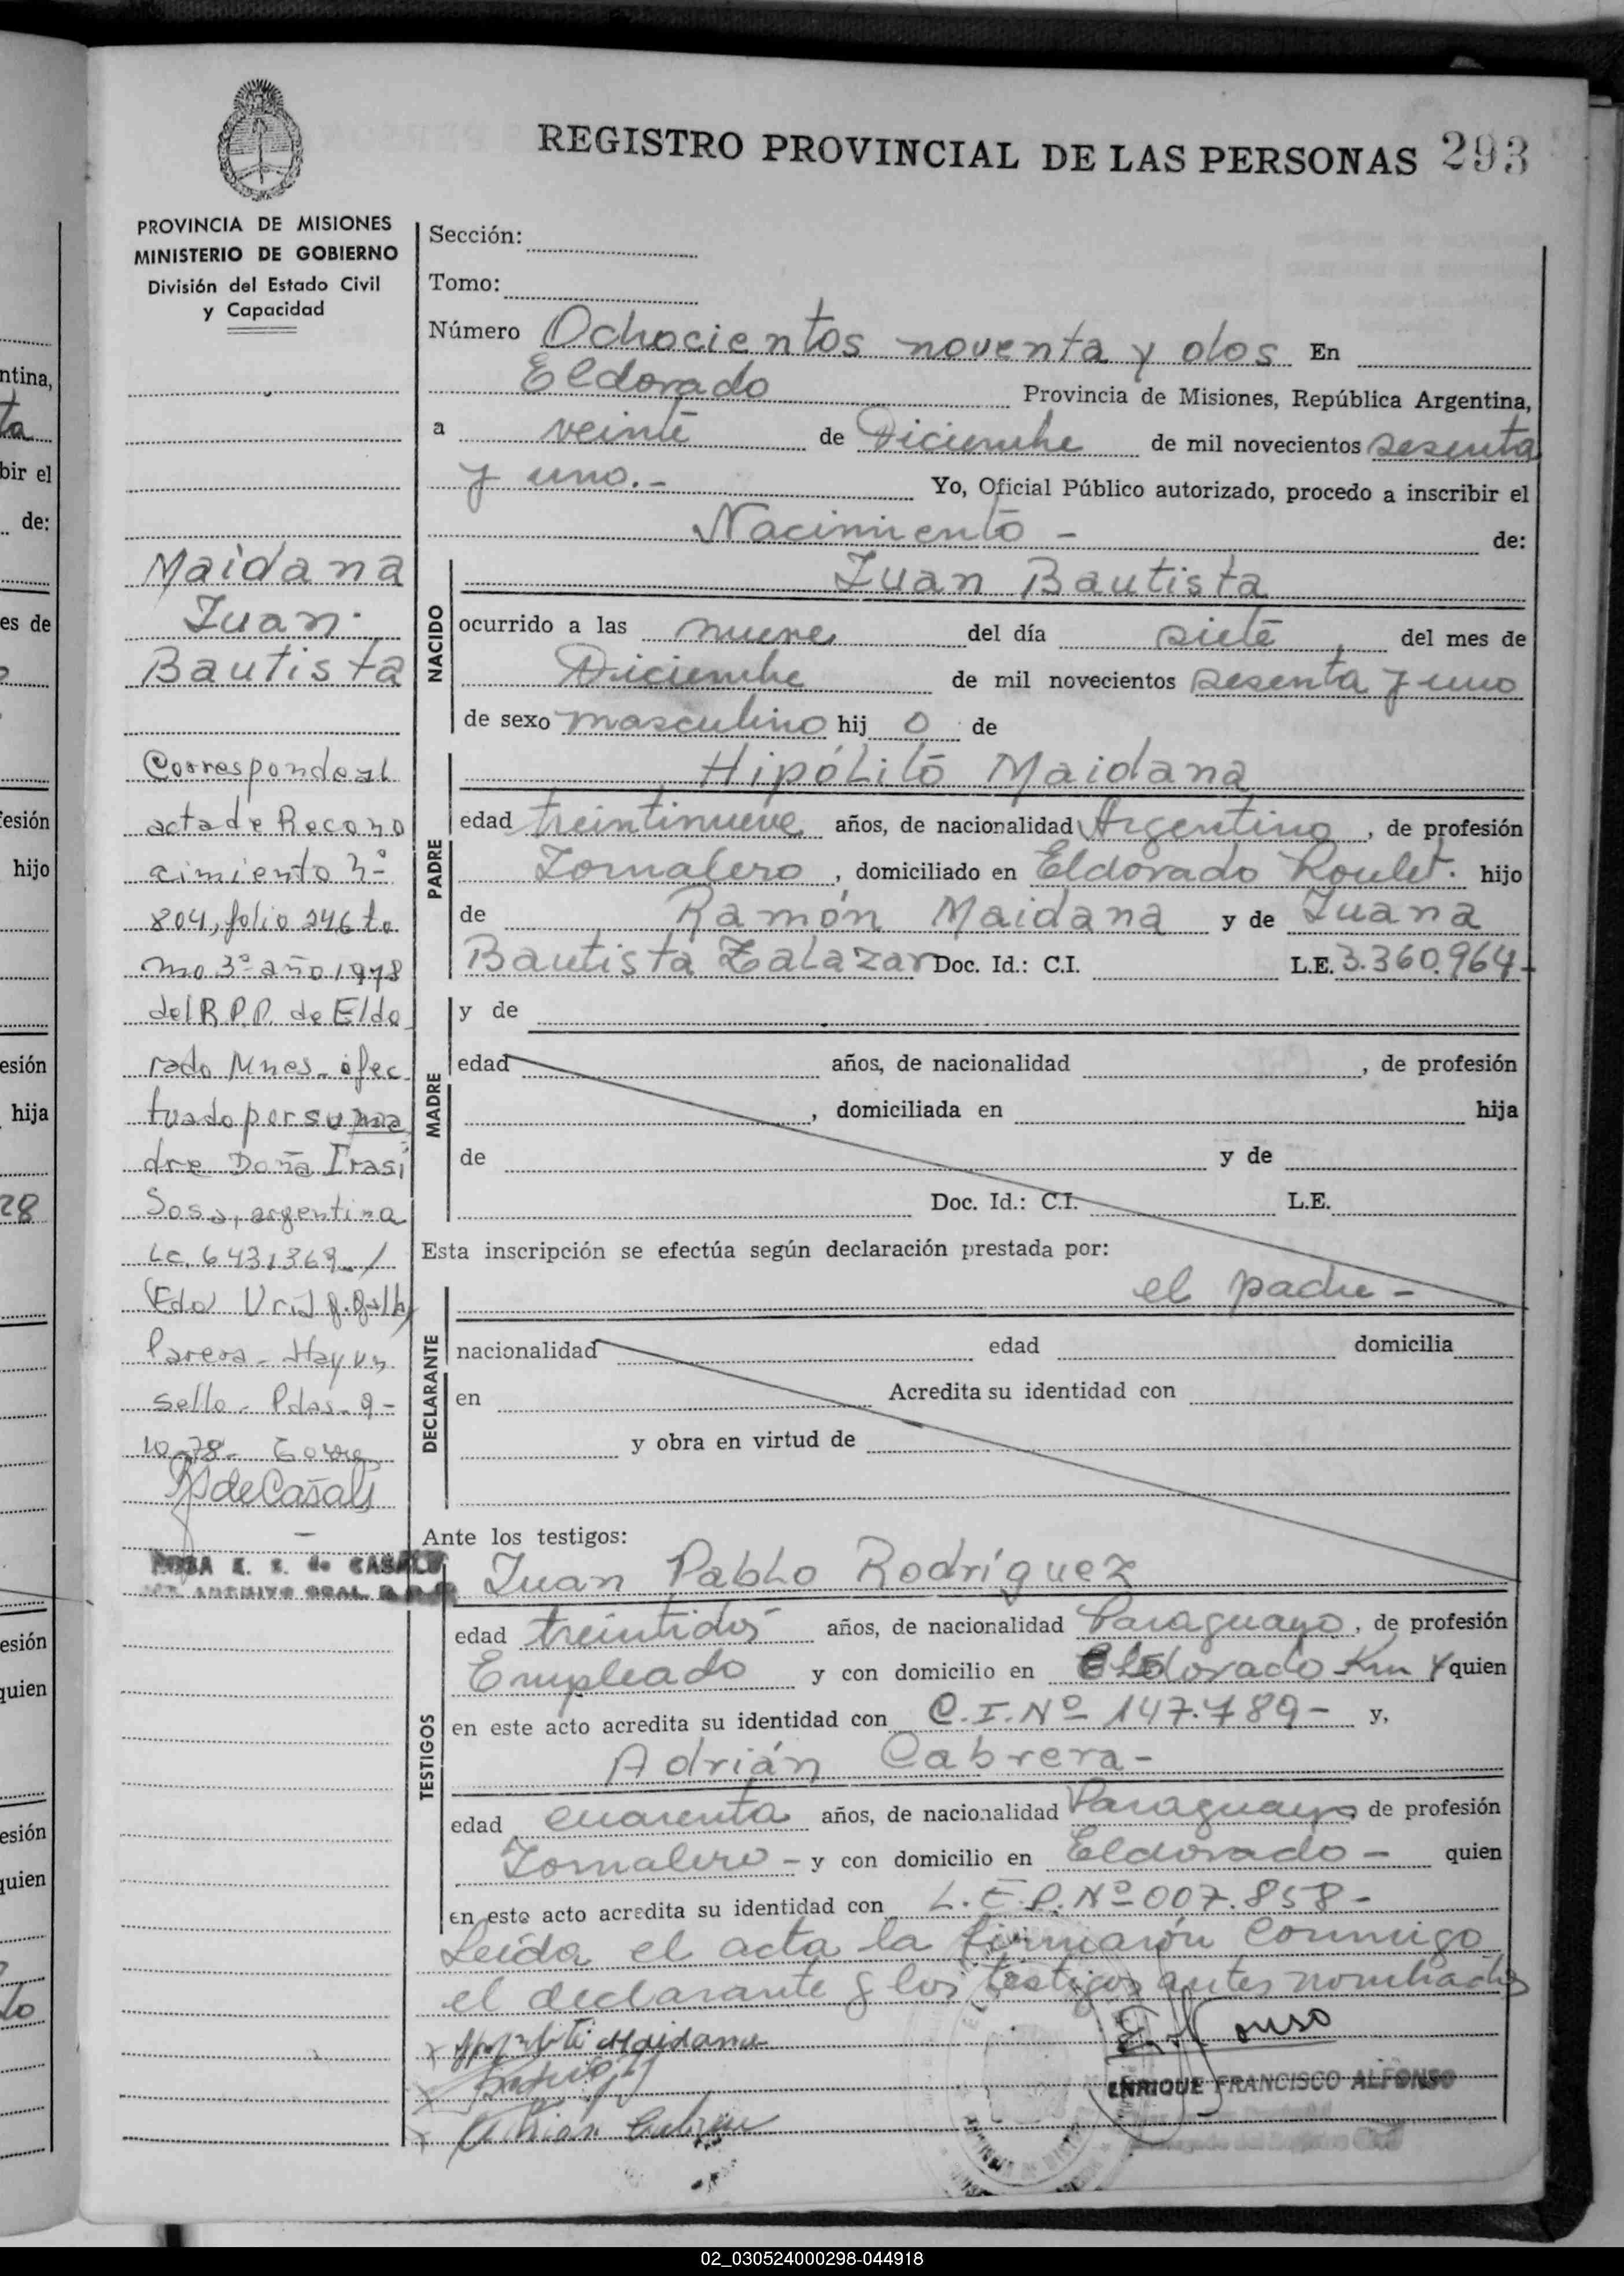 REGISTRO PROVINCIAL DE LAS PERSONAS 293
PROVINCIA DE MISIONES
MINISTERIO DE GOBIERNO
División del Estado Civil
y Capacidad
Maidana
Juan
Bautista
Corresponde al
acta de Recono
cimiento nº
804, folio 246 to
mo 3º año 1978
del R.P.P. de Eldo
rado Mnes. efec
tuado por su ma
dre Doña Irasi
Sosa, argentina
Lc. 6431369./
Fdo/
Parera - Hay un
sello - Pdas. 9-
10-78-
de Casals
ROSA E. de CASALS
ARCHIVO GRAL.
Sección:
Tomo:
Número Ochocientos noventa y dos En
Eldorado Provincia de Misiones, República Argentina,
a veinte de Diciembre de mil novecientos sesenta
y uno.- Yo, Oficial Público autorizado, procedo a inscribir el
Nacimiento - de:
NACIDO
Juan Bautista
ocurrido a las nueve del día siete, del mes de
Diciembre de mil novecientos sesenta y uno
de sexo masculino hij o de
PADRE
Hipólito Maidana
edad treintinueve años, de nacionalidad Argentino, de profesión
Jornalero, domiciliado en Eldorado Roulet. hijo
de Ramón Maidana y de Juana
Bautista Zalazar Doc. Id.: C.I. L.E. 3.360.964-
MADRE
y de
edad años, de nacionalidad , de profesión
, domiciliada en hija
de y de
Doc. Id.: C.I. L.E.
Esta inscripción se efectúa según declaración prestada por:
el padre -
DECLARANTE
nacionalidad edad domicilia
en Acredita su identidad con
y obra en virtud de
Ante los testigos:
TESTIGOS
Juan Pablo Rodríguez
edad treintidós años, de nacionalidad Paraguayo, de profesión
Empleado y con domicilio en Eldorado Km 4 quien
en este acto acredita su identidad con C.I. Nº 147.789- y,
Adrián Cabrera-
edad cuarenta años, de nacionalidad Paraguayo de profesión
Jornalero - y con domicilio en Eldorado - quien
en este acto acredita su identidad con L.E.P. Nº 007.858-
Leída el acta la firmarón conmigo
el declarante y los testigos antes nombrados
Hipolito Maidana
E. Alfonso
ENRIQUE FRANCISCO ALFONSO
Adrian Cabrera
ntina,
ta
bir el
de:
es de
esión
hijo
esión
hija
28
esión
quien
esión
quien
do
02_030524000298-044918